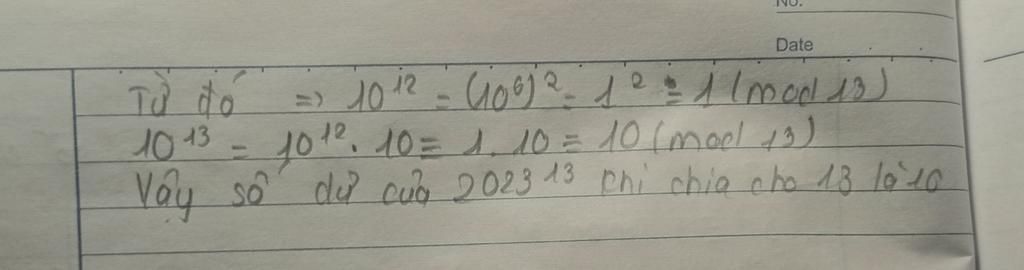 No.
Date
Từ đó => 10^12 = (10^6)^2 = 1^2 ≡ 1 (mod 13)
10^13 = 10^12 . 10 ≡ 1 . 10 ≡ 10 (mod 13)
Vậy số dư của 2023^13 khi chia cho 13 là 10